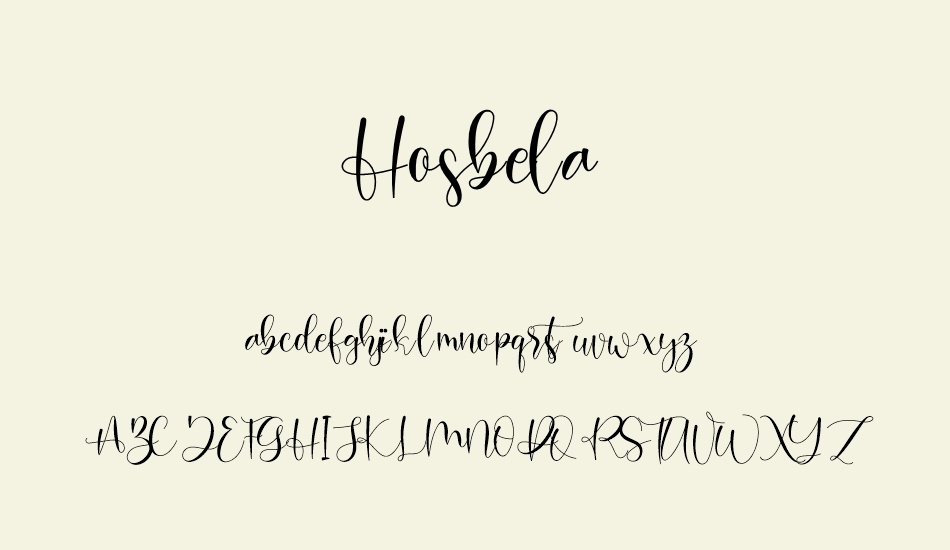 Hosbela
abcdefghijklmnopqrst uvwxyz
ABCDEFGHIJKLMNOPQRSTUVWXYZ